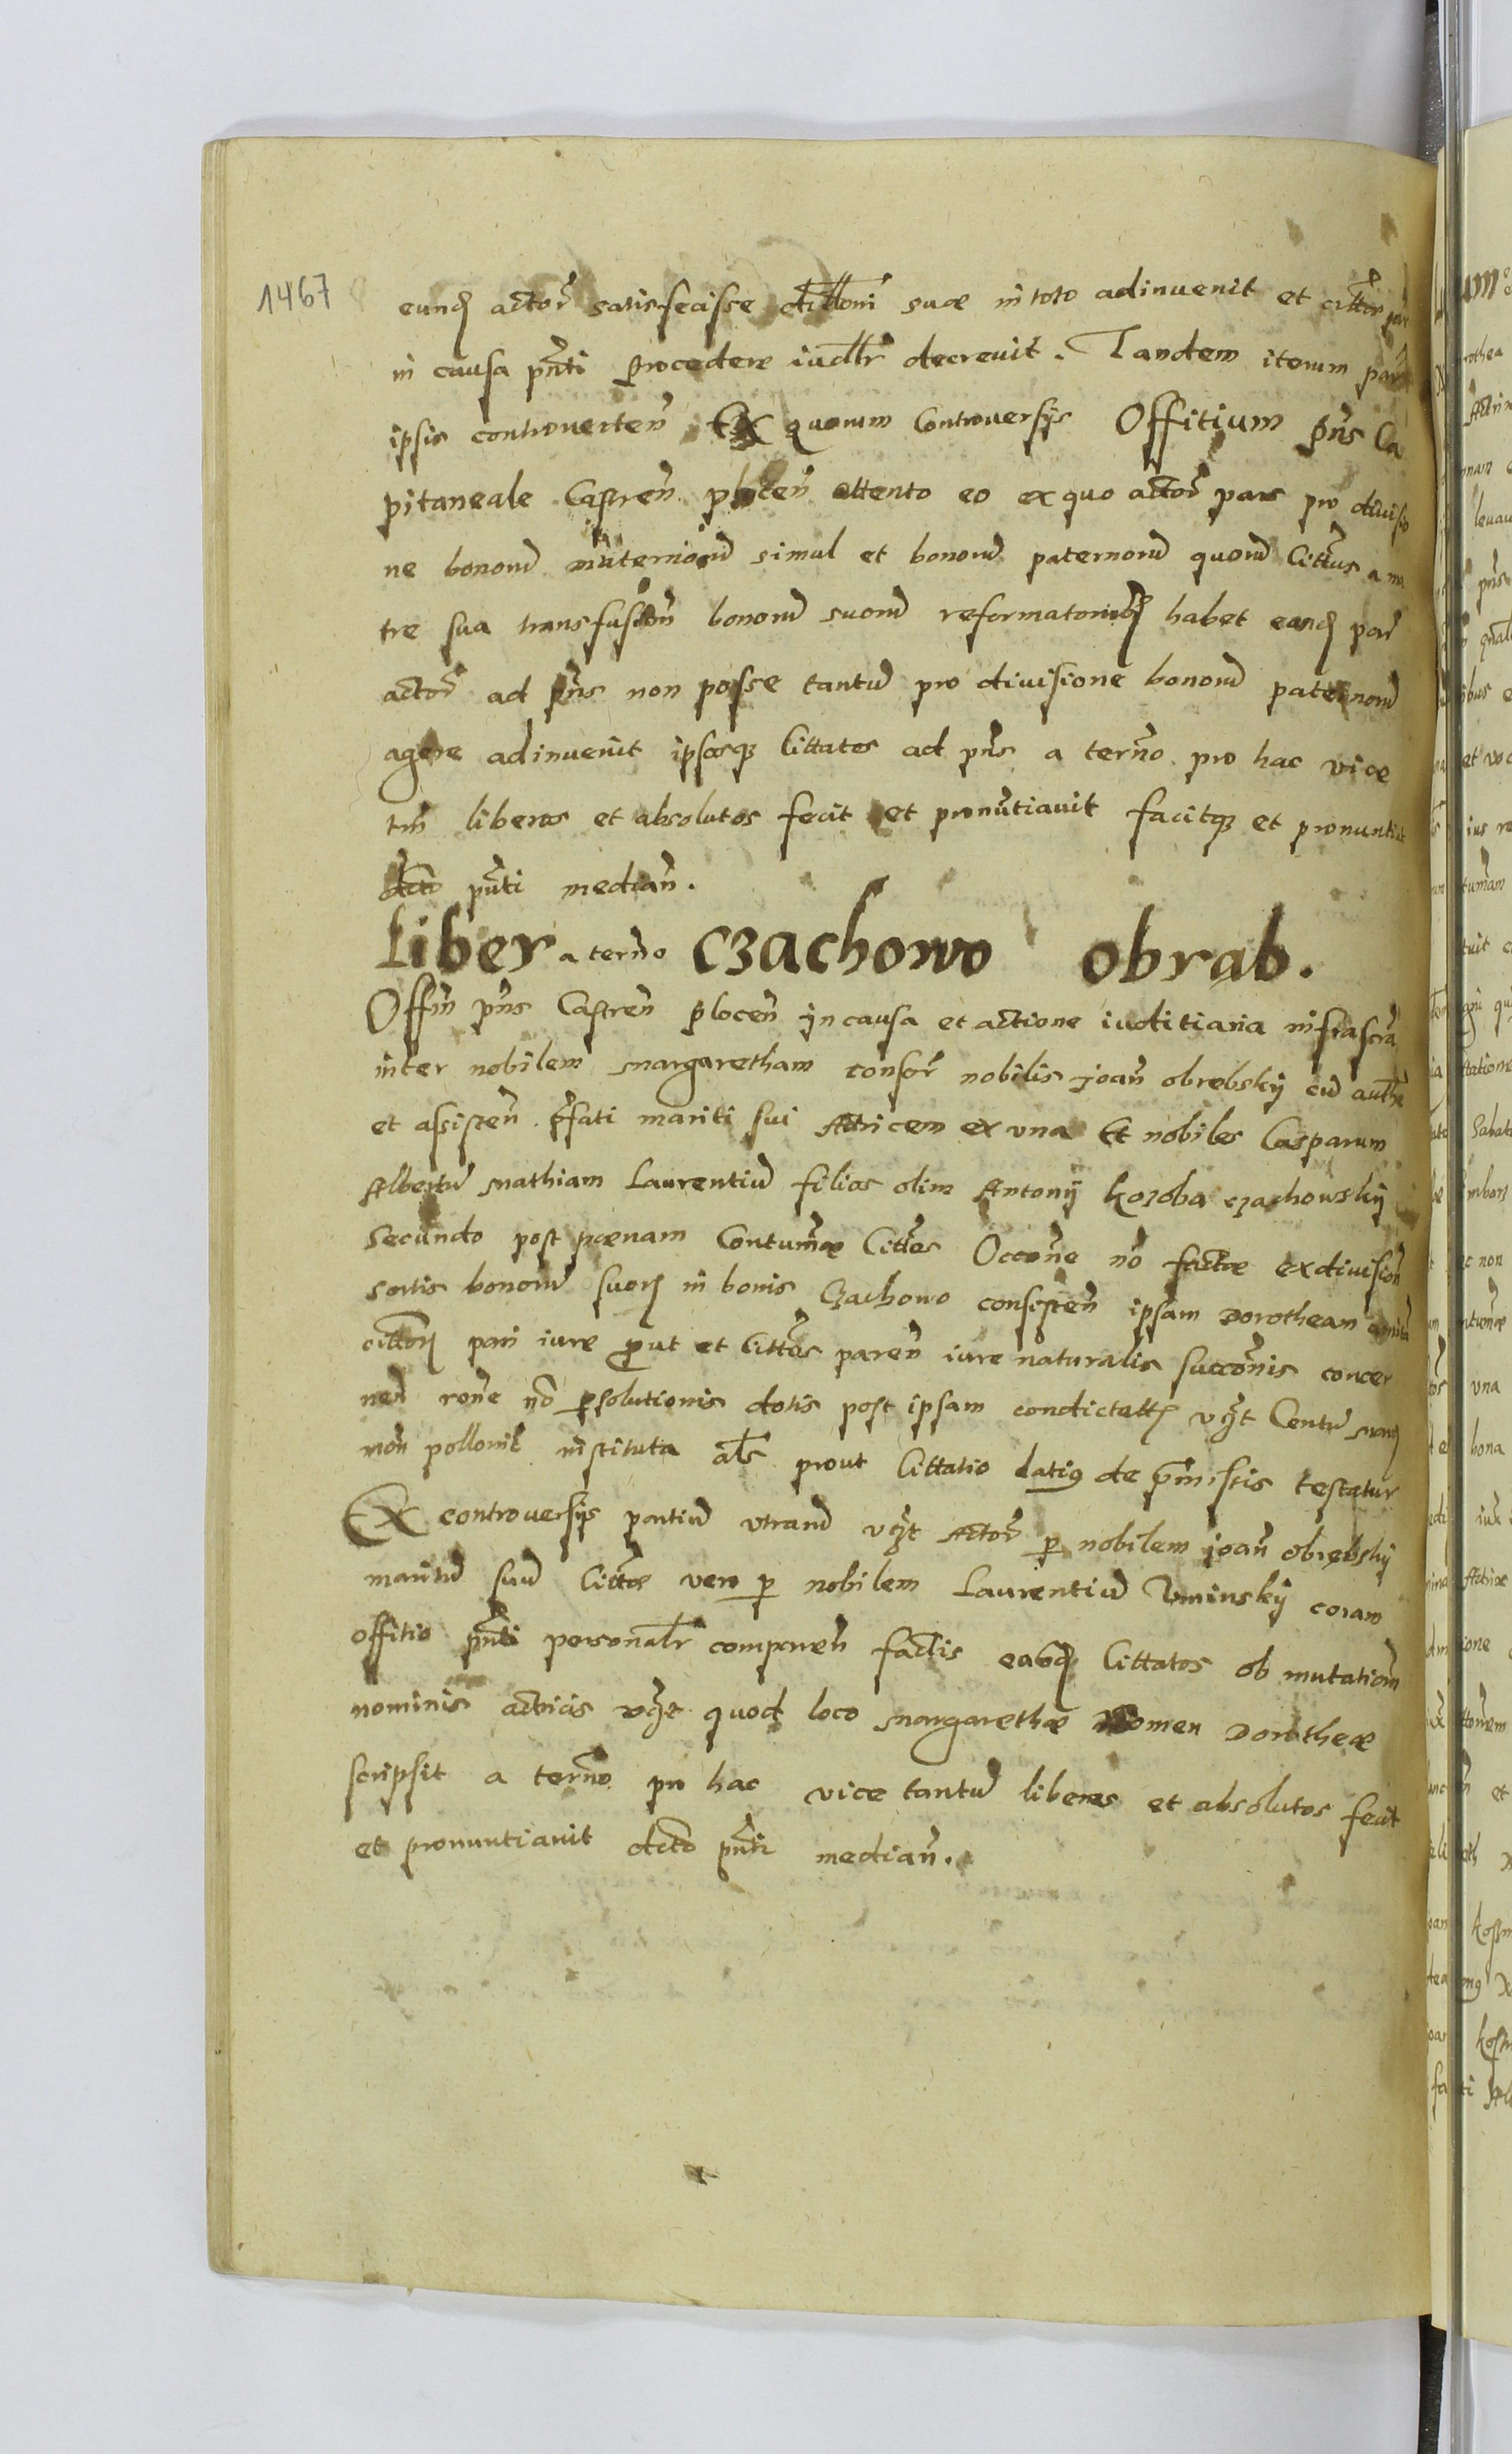 1467
eundꝫ actor̃ satisfecisse cittõni suæ in toto adinvenit et
in causa pñti procedere iudlr̃ decrevit. Tandem iterum
ipsis controverteñ Ex quorum Controversÿs Offitium pñs Ca
pitaneale Castreñ ploceñ attento eo ex quo actor̃ pars pro divisio
ne bonorũ maternorũ simul et bonorũ paternorũ quorũ Cittũs a ma
tre sua bonorũ suorũ habet eandꝫ par̃
actor̃ ad pñs non posse tantũ pro divisione bonorũ paternorũ
agere adinvenit ipsosqꝫ Cittatos ad pñs a terño pro hac vice
tm̃ liberos et absolutos fecit et pronũtiavit facitqꝫ et pronuntiat
dcto pñti median̄.
Liber a terño Czachowo obrąb.
Offiñ pñs Castreñ ploceñ jn causa et actione iuditiaria infrascrã
inter nobilem margaretham consor̃ nobilis joañ obrębskÿ cũ auth̃e
et assisteñ p̃fati mariti sui Actricem ex una Et nobiles Casparum
Albertũ mathiam Laurentiũ filios olim Antonÿ kozoba czachowskÿ
Secundo post pœnam Contum̃æ Cittos Occoñe nõ factæ exdivisioñ
sortis bonorũ suorꝫ in bonis Czachowo consisteñ ipsam Dorotheam
cittorꝫ pari iure prout et Cittõs pareñ iure naturalis succoñis concer
neñ roñe nõ persolutionis dotis post ipsam condictattꝫ vꝫt Centũ marꝫ
moñ polloni instituta als̃ prout Cittatio latiꝰ de p̃missis testatur
Ex controversÿs partiũ utrarũ vꝫt Actor̃ p nobilem joañ obrębskÿ
maritũ suũ Cittæ vero p nobilem Laurentiũ Uminskÿ coram
offitio pñti personalr̃ compareñ factis eosdꝫ Cittatos ob mutatioñ
nominis actricis vꝫt quod loco margarethæ Nomen Dorotheæ
scripsit a terño pro hac vice tantũ liberos et absolutos fecit
et pronuntiavit dcto pñti median̄.